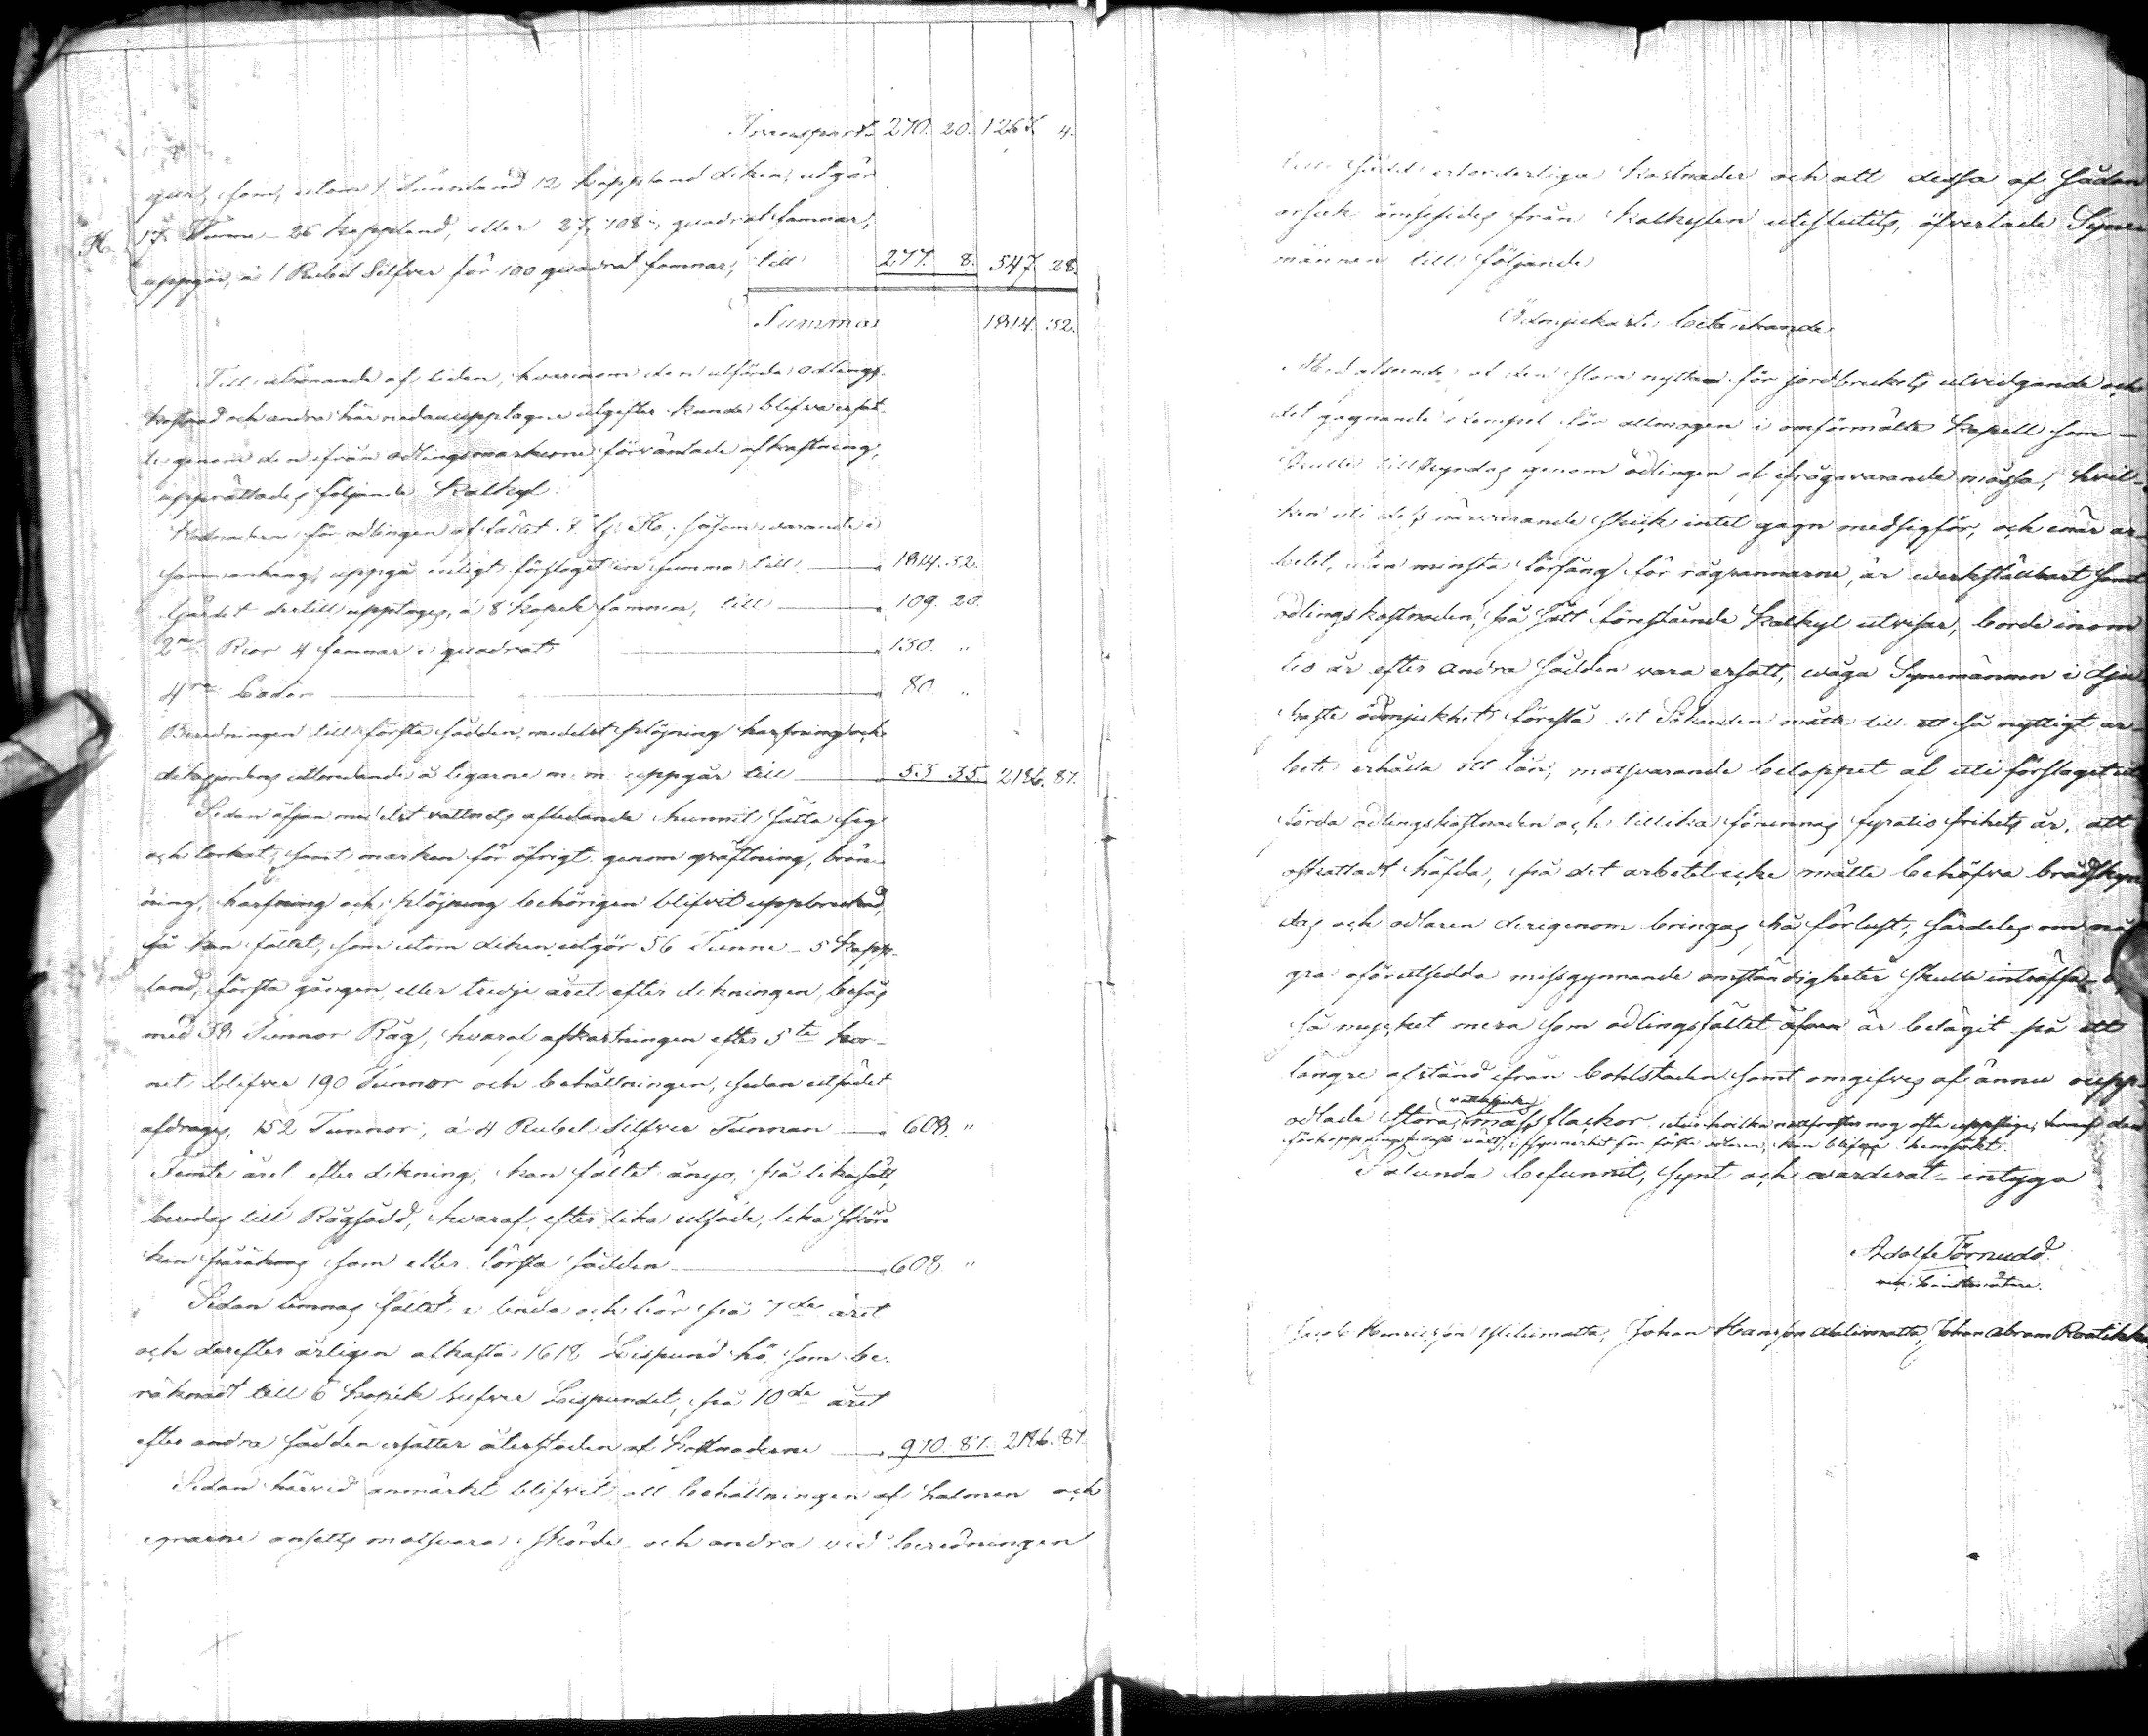 Transport 270. 20. 1267. 4.
gar, som, utom 1 Tunnland 12 Kappland diken, utgör
H. 17 Tunne- 26 Kappland, eller 27,708 quadrat famnar,
uppgår, à 1 Rubel Silfver för 100 quadrat famnar, till 277. 8. 547. 28.
Summa 1814. 32.
Till utrönande af tiden, hvarinom den utförda odlings-
kostnad och andra här nedan upptagne utgifter kunde blifva ersat-
te genom den från odlingsmarkerne förväntade afkastning,
upprättades följande Kalkyl.
Kostnaden för odlingen af fältet , såsom varande i
sammanhang, uppgå enligt förslaget in summa till 1814. 32.
Gärdet dertill upptages, à 8 kopek famnen, till 109. 20.
2ne Rior 4 famnar i quadrat 130. "
4ra Lador 80. "
Beredningen till första sådden, medelst plöjning harfning och
dikesjordens utbredande å tegarne m. m. uppgår till 53. 35. 2186. 87.
Sedan äfjan medelst vattnets afledande hunnit sätta sig
och torkat, samt marken för öfrigt genom gräftning, brän-
ning, harfning och plöjning behörigen blifvit uppbrukad,
så kan fältet, som utom diken utgör 56 Tunne- 5 Kapp-
land, första gången eller tredje året efter dikningen, besås
med 38 Tunnor Råg, hvaraf afkastningen efter 5te kor-
net blifver 190 Tunnor och behållningen, sedan utsädet
afdrages, 152 Tunnor, à 4 Rubel Silfver Tunnan 608. "
Femte året efter dikning, kan fältet ånyo, på lika sätt,
beredas till Rågsådd, hvaraf, efter lika utsäde, lika skörd
kan påräknas som efter första sådden 608 "
Sedan lemnas fältet i linda och bör på 7de året
och derefter årligen afkasta 1618 Lispund hö, som be-
räknadt till 6 kopek Silfver Lispundet, på 10de året
efter andra sådden ersätter återstoden af kostnaderne 970. 87. 2186. 87.
Sedan härvid anmärkt blifvit, att behållningen af halmen och
agnarne ansetts motsvara skörde och andra vid beredningen
till sådd erforderliga kostnader och att dessa af sådan
orsak ömsesides från kalkylen uteslutits, öfverlade Syne-
männen till följande
Ödmjukaste betänkande
Med afseende af den stora nyttan för jordbrukets utvidgande och
det gagnande exempel för allmogen i omförmälte Kapell som
skulle tillskyndas genom odlingen af ifrågavarande mossa, hvil-
ken uti dess närvarande skick intet gagn medsigför, och enär ar-
betet, utan minsta förfång för rågrannarne, är verkställbart samt
odlingskostnaden, på sätt förestående Kalkyl utvisar, borde inom
tio år efter andra sådden vara ersatt, våga Synemännen i djup-
aste ödmjukhet föreslå det Sökanden måtte till ett så nyttigt ar-
bete erhålla ett lån, motsvarande beloppet af uti förslaget ut-
förda odlingskostnaden och tillika förunnas fyratio frihets år, att
oskattadt häfda, på det arbetet icke måtte behöfva brådskyn-
das och odlaren derigenom bringas på förlust, särdeles om nå-
gra oförutsedda missgynnande omständigheter skulle inträffa,
så mycket mera som odlingsfältet äfven är belägit på ett
längre afstånd ifrån bohlstaden samt omgifves af ännu oupp-
odlade stora, (vattusjuka) mass flackor, utur hvilka nattfroster nog ofta uppstiga, hvaraf den
förhoppningsfullaste växt, i synnerhet för första odlaren, kan blifva hemsökt.
Sålunda befunnit, synt och värderat intyga
Adolf Törnudd.
vice Landtmätare.
Jacob Henricsson , Johan Hansson , Johan Abram Raatikka